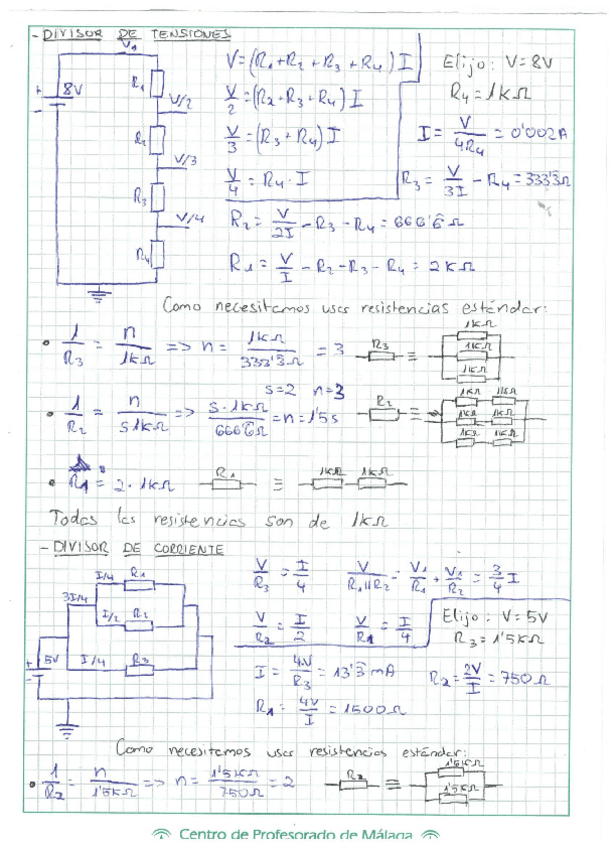 - DIVISOR DE TENSIONES
V₁
V=(R₁+R₂+R₃+R₄)I
Elijo: V=8V
8V
R₁
V/2
V/2=(R₂+R₃+R₄)I
R₄=1KΩ
R₂
V/3
V/3=(R₃+R₄)I
I=V/4R₄=0'002A
R₃
V/4
V/4=R₄·I
R₃=V/3I-R₄=333'3Ω
R₄
R₂=V/2I-R₃-R₄=666'6Ω
R₁=V/I-R₂-R₃-R₄=2KΩ
Como necesitamos usar resistencias estándar:
• 1/R₃=n/1kΩ => n=1kΩ/333'3Ω=3
R₃ ≡ 1kΩ 1kΩ 1kΩ
s=2 n=3
• 1/R₂=n/s1kΩ => s·1kΩ/666'6Ω=n=1'5s
R₂ ≡ 1kΩ 1kΩ 1kΩ 1kΩ 1kΩ 1kΩ
• R₁=2·1kΩ
R₁ ≡ 1kΩ 1kΩ
Todas las resistencias son de 1kΩ
- DIVISOR DE CORRIENTE
I/4 R₁
V/R₃=I/4
V/R₁||R₂=V₁/R₁+V₁/R₂=3/4 I
3I/4
I/2 R₂
V/R₂=I/2
V/R₁=I/4
Elijo: V=5V
R₃=1'5KΩ
5V
I/4 R₃
I=4V/R₃=13'3mA
R₂=2V/I=750Ω
R₁=4V/I=1500Ω
Como necesitamos usar resistencias estándar:
• 1/R₂=n/1'5KΩ => n=1'5KΩ/750Ω=2
R₂ ≡ 1'5KΩ 1'5KΩ
Centro de Profesorado de Málaga